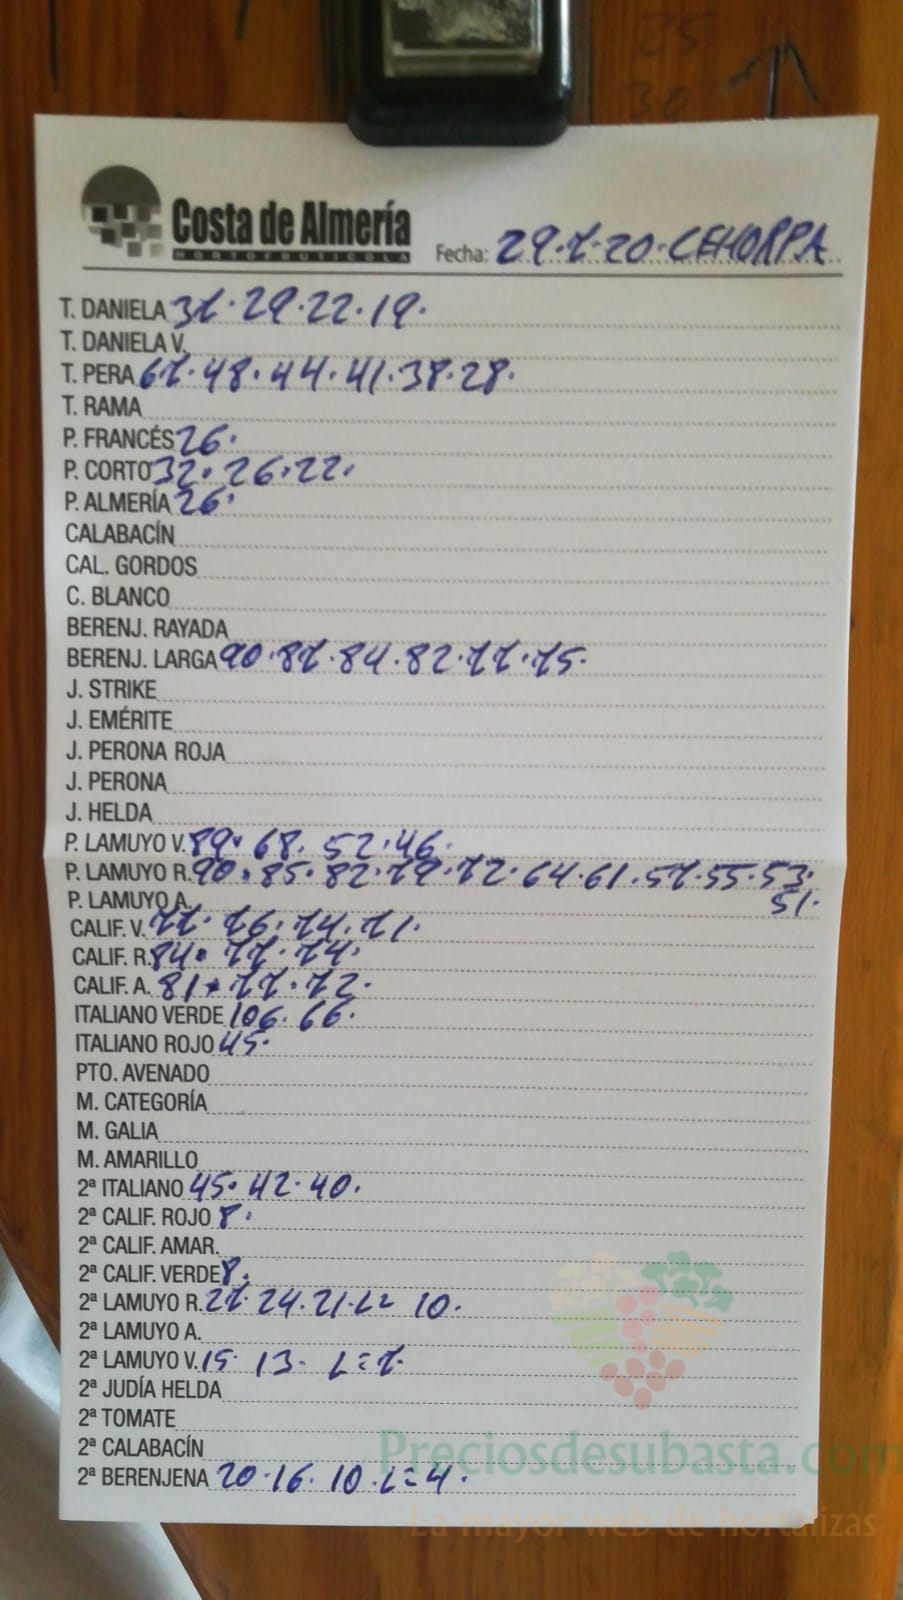 25
30
Costa de Almería
HORTOFRUTICOLA
Fecha: 29.7.20.CEHORPA
T. DANIELA 37.29.22.19.
T. DANIELA V.
T. PERA 67.48.44.41.38.28.
T. RAMA
P. FRANCÉS 26.
P. CORTO 32.26.22.
P. ALMERÍA 26.
CALABACÍN
CAL. GORDOS
C. BLANCO
BERENJ. RAYADA
BERENJ. LARGA 90.87.84.82.77.75.
J. STRIKE
J. EMÉRITE
J. PERONA ROJA
J. PERONA
J. HELDA
P. LAMUYO V. 89.68.52.46.
P. LAMUYO R. 90.85.82.79.72.64.61.57.55.53.
P. LAMUYO A. 51.
CALIF. V. 77.76.74.71.
CALIF. R. 84.77.74.
CALIF. A. 81.77.72.
ITALIANO VERDE 106.66.
ITALIANO ROJO 45.
PTO. AVENADO
M. CATEGORÍA
M. GALIA
M. AMARILLO
2ª ITALIANO 45.42.40.
2ª CALIF. ROJO 8.
2ª CALIF. AMAR.
2ª CALIF. VERDE 8.
2ª LAMUYO R. 27.24.21.L= 10.
2ª LAMUYO A.
2ª LAMUYO V. 15. 13. L=7.
2ª JUDÍA HELDA
2ª TOMATE
2ª CALABACÍN
2ª BERENJENA 20.16.10.L=4.
Preciosdesubasta.com
La mayor web de hortalizas